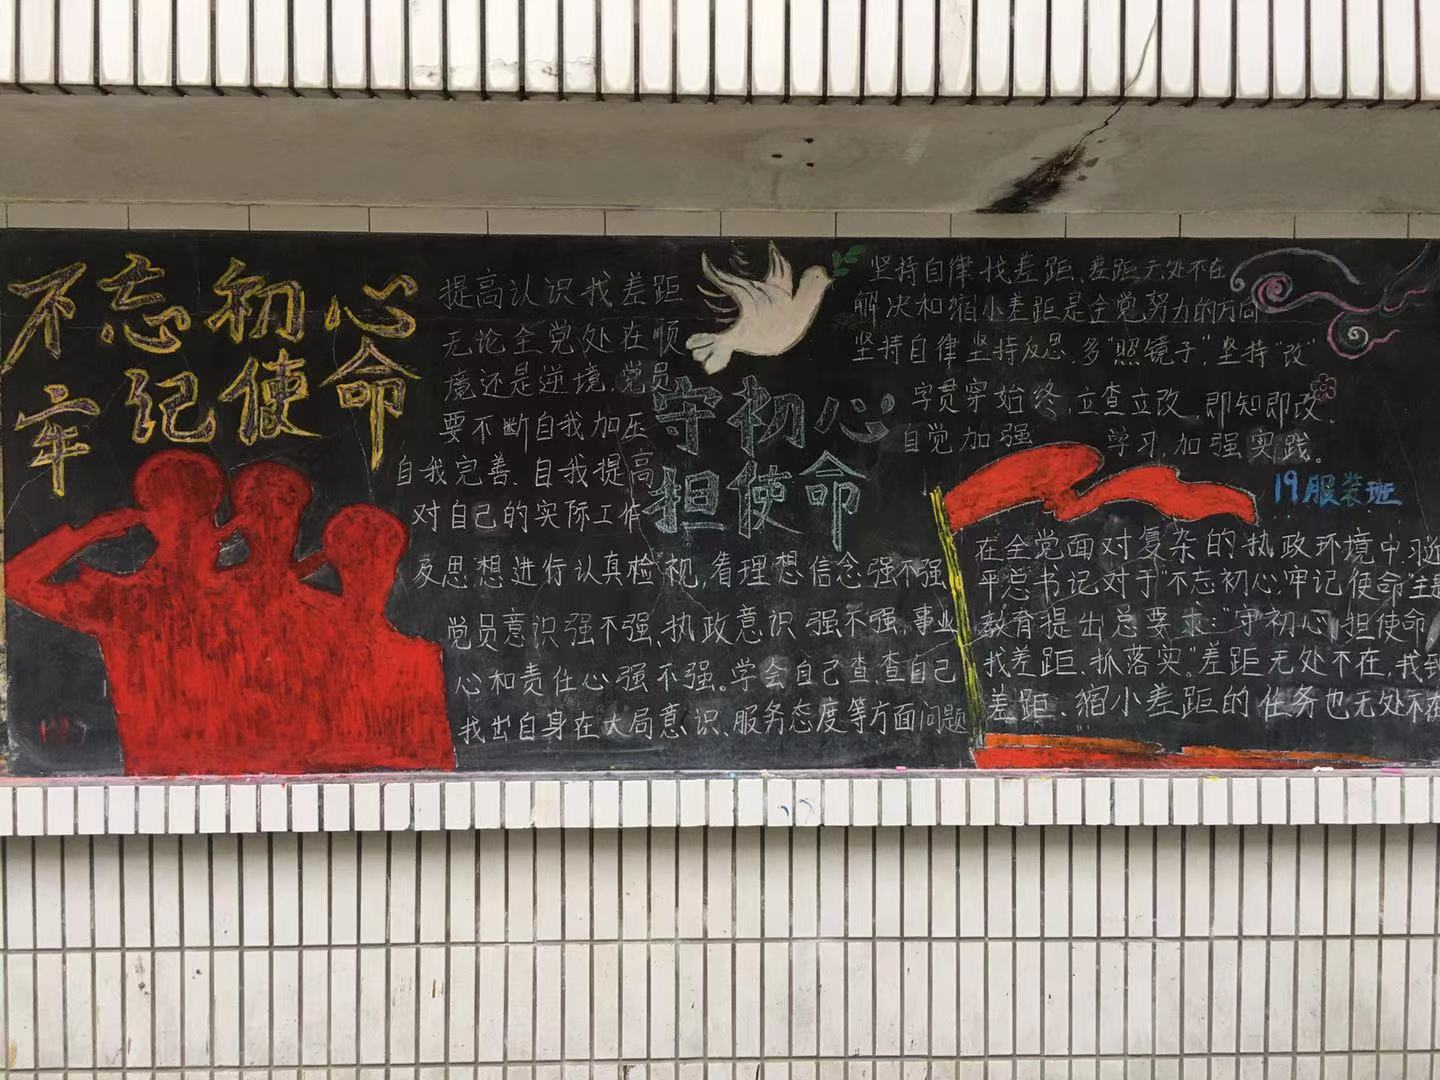 不忘初心
牢记使命
提高认识找差距
无论全党处在顺
境还是逆境,党员
要不断自我加压
自我完善、自我提高
对自己的实际工作
及思想进行认真检视,看理想信念强不强
党员意识强不强、执政意识强不强,事业
心和责任心强不强。学会自己查,查自己
找出自身在大局意识、服务态度等方面问题
守初心
担使命
坚持自律找差距、差距无处不在
解决和缩小差距是全党努力的方向
坚持自律 坚持反思、多"照镜子",坚持"改"
字贯穿始终,立查立改,即知即改。
自觉加强 学习,加强实践。
19服装班
在全党面对复杂的执政环境中,习近
平总书记对于"不忘初心,牢记使命"主题
教育提出总要求:"守初心,担使命
找差距、抓落实"差距无处不在,找到
差距、缩小差距的任务也无处不在